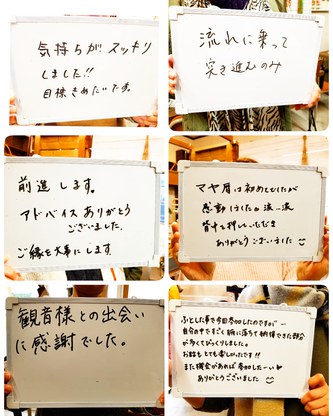 気持ちがスッキリ
しました!!
目標きめたいです。
流れに乗って
突き進むのみ
前進します。
アドバイスありがとう
ございました。
ご縁を大事にします。
マヤ暦は初めてでしたが
感動しました
背中押していただき
ありがとうございました
観音様との出会い
に感謝でした。
ふとした事で今回参加したのですが
自分の中ですごく腑に落ちて納得できた部分
が多くてびっくりしました。
お話もとても楽しかったです!!
また機会があれば参加したーい
ありがとうございました